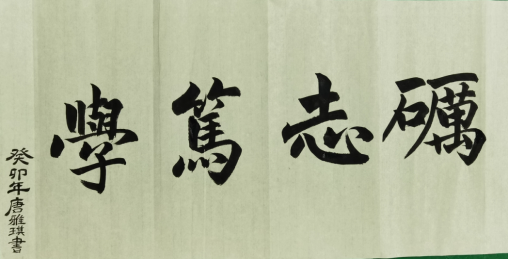 礪志篤學
癸卯年唐雅琪書